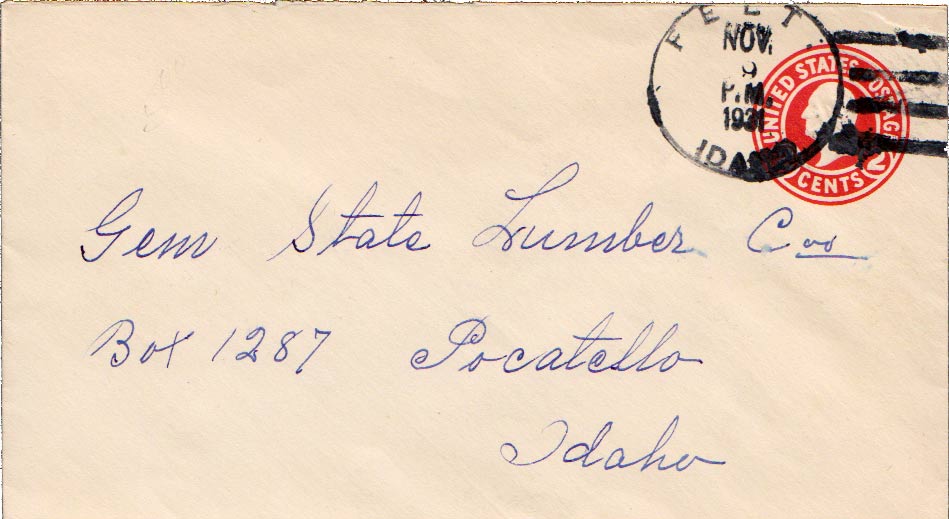 FELT
NOV.
9
P.M.
1931
IDAHO
UNITED STATES POSTAGE
2
CENTS
Gem State Lumber Coo
Box 1287 Pocatello
Idaho